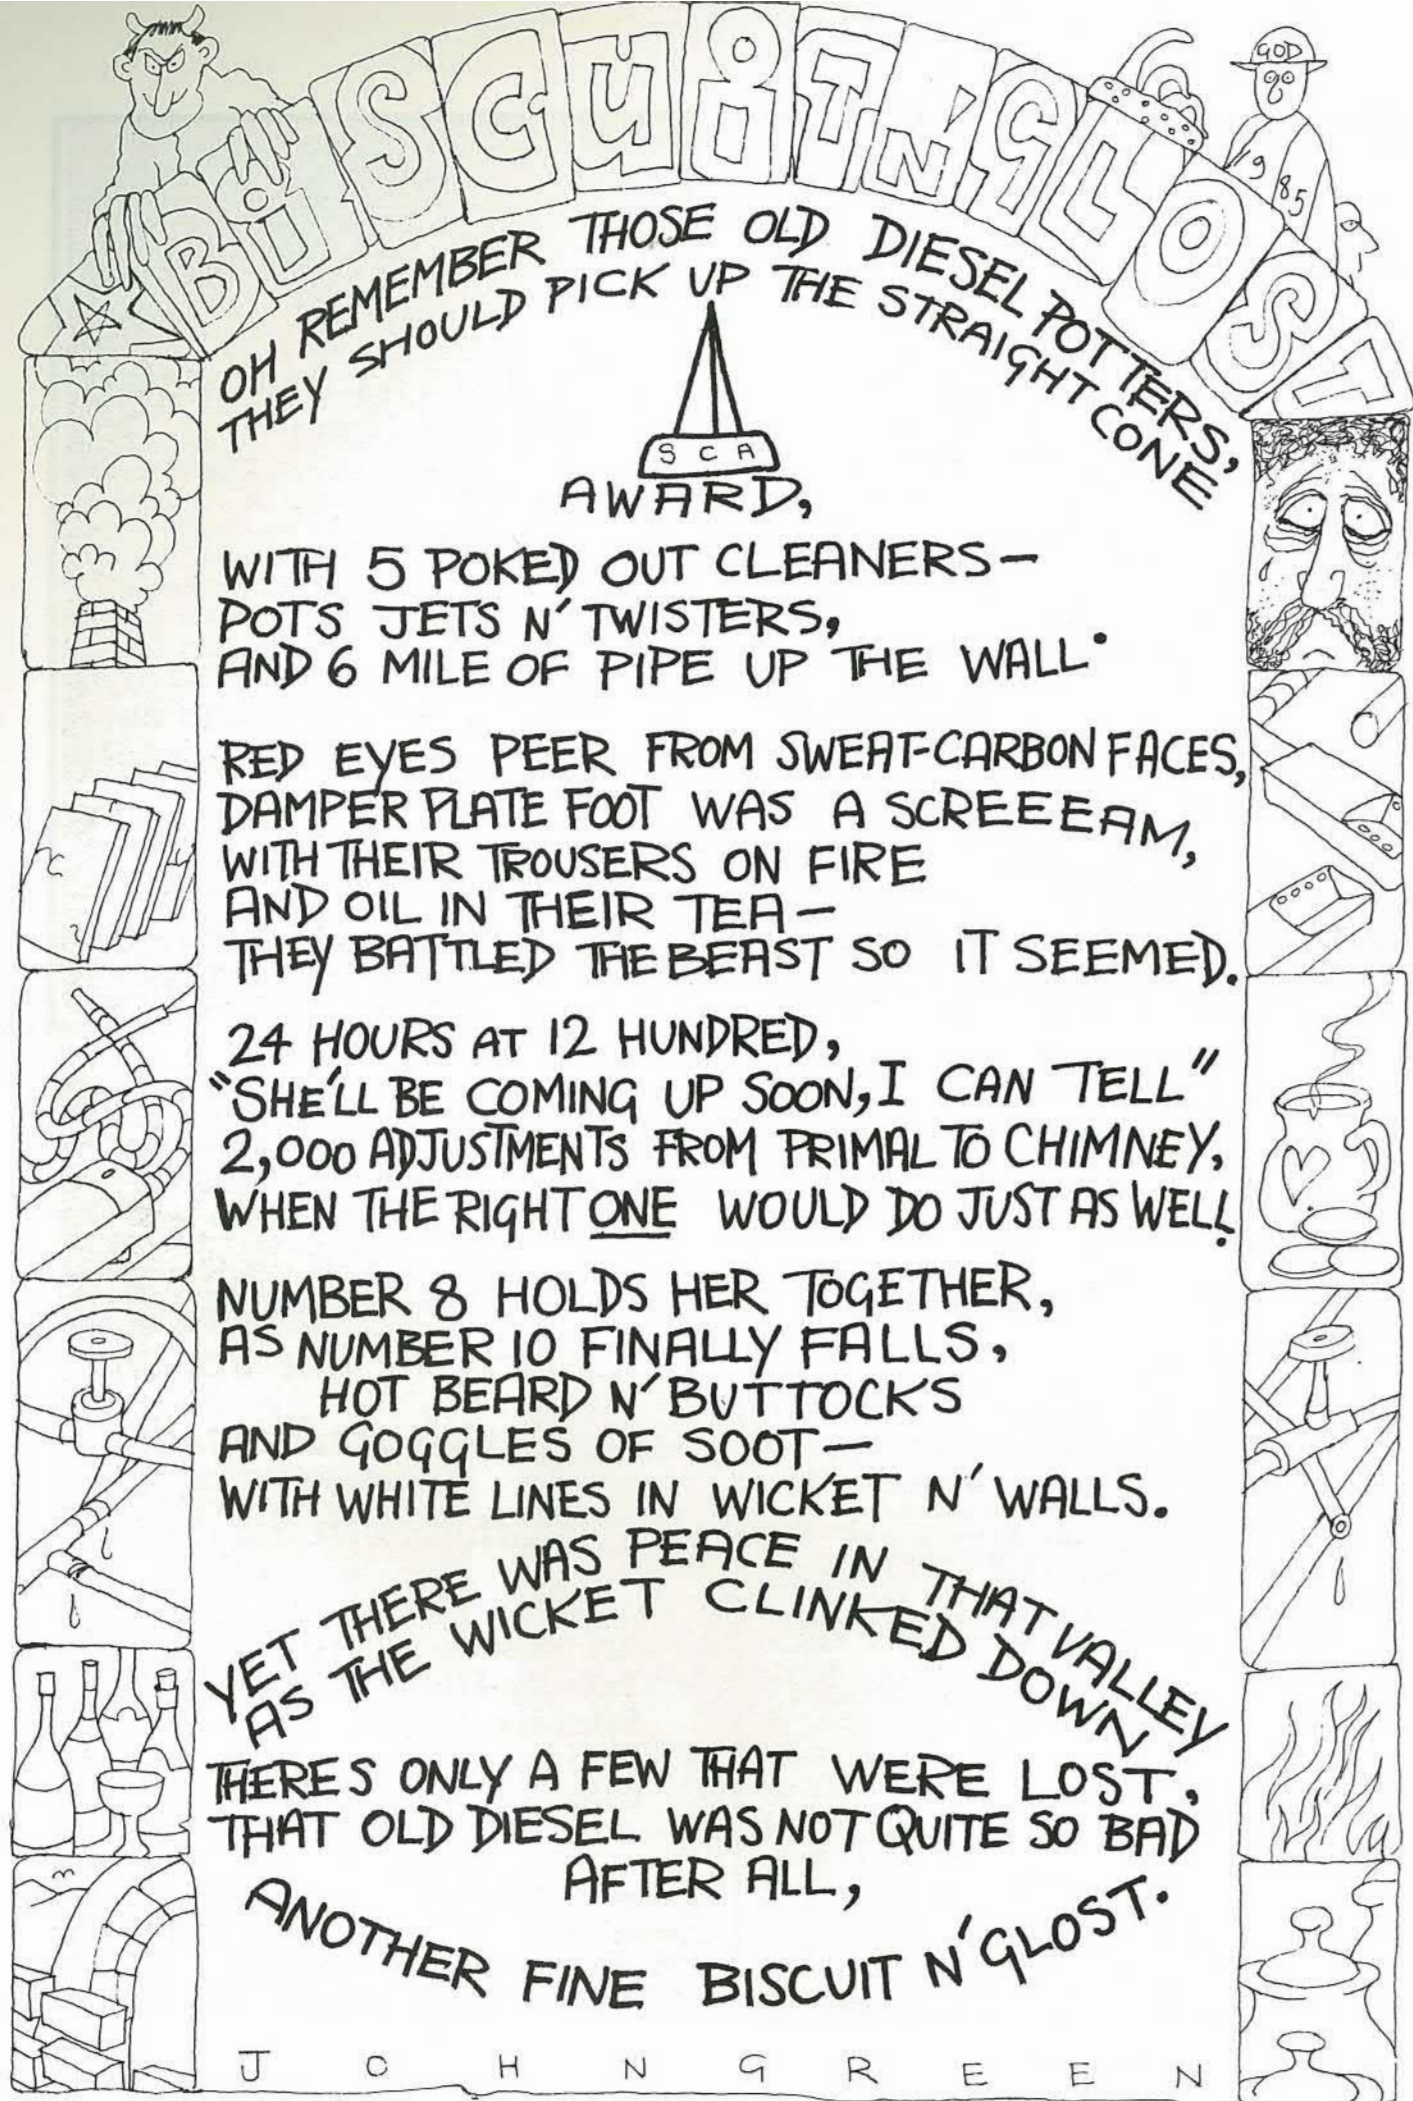 BISCUIT N' GLOST
GOD
1985
OH REMEMBER THOSE OLD DIESEL POTTERS,
THEY SHOULD PICK UP THE STRAIGHT CONE
SCA
AWARD,
WITH 5 POKED OUT CLEANERS—
POTS JETS N' TWISTERS,
AND 6 MILE OF PIPE UP THE WALL.
RED EYES PEER FROM SWEAT-CARBON FACES,
DAMPER PLATE FOOT WAS A SCREEEAM,
WITH THEIR TROUSERS ON FIRE
AND OIL IN THEIR TEA—
THEY BATTLED THE BEAST SO IT SEEMED.
24 HOURS AT 12 HUNDRED,
"SHE'LL BE COMING UP SOON, I CAN TELL"
2,000 ADJUSTMENTS FROM PRIMAL TO CHIMNEY,
WHEN THE RIGHT ONE WOULD DO JUST AS WELL!
NUMBER 8 HOLDS HER TOGETHER,
AS NUMBER 10 FINALLY FALLS,
HOT BEARD N' BUTTOCKS
AND GOGGLES OF SOOT—
WITH WHITE LINES IN WICKET N' WALLS.
YET THERE WAS PEACE IN THAT VALLEY
AS THE WICKET CLINKED DOWN
THERES ONLY A FEW THAT WERE LOST,
THAT OLD DIESEL WAS NOT QUITE SO BAD
AFTER ALL,
ANOTHER FINE BISCUIT N' GLOST.
JOHN GREEN